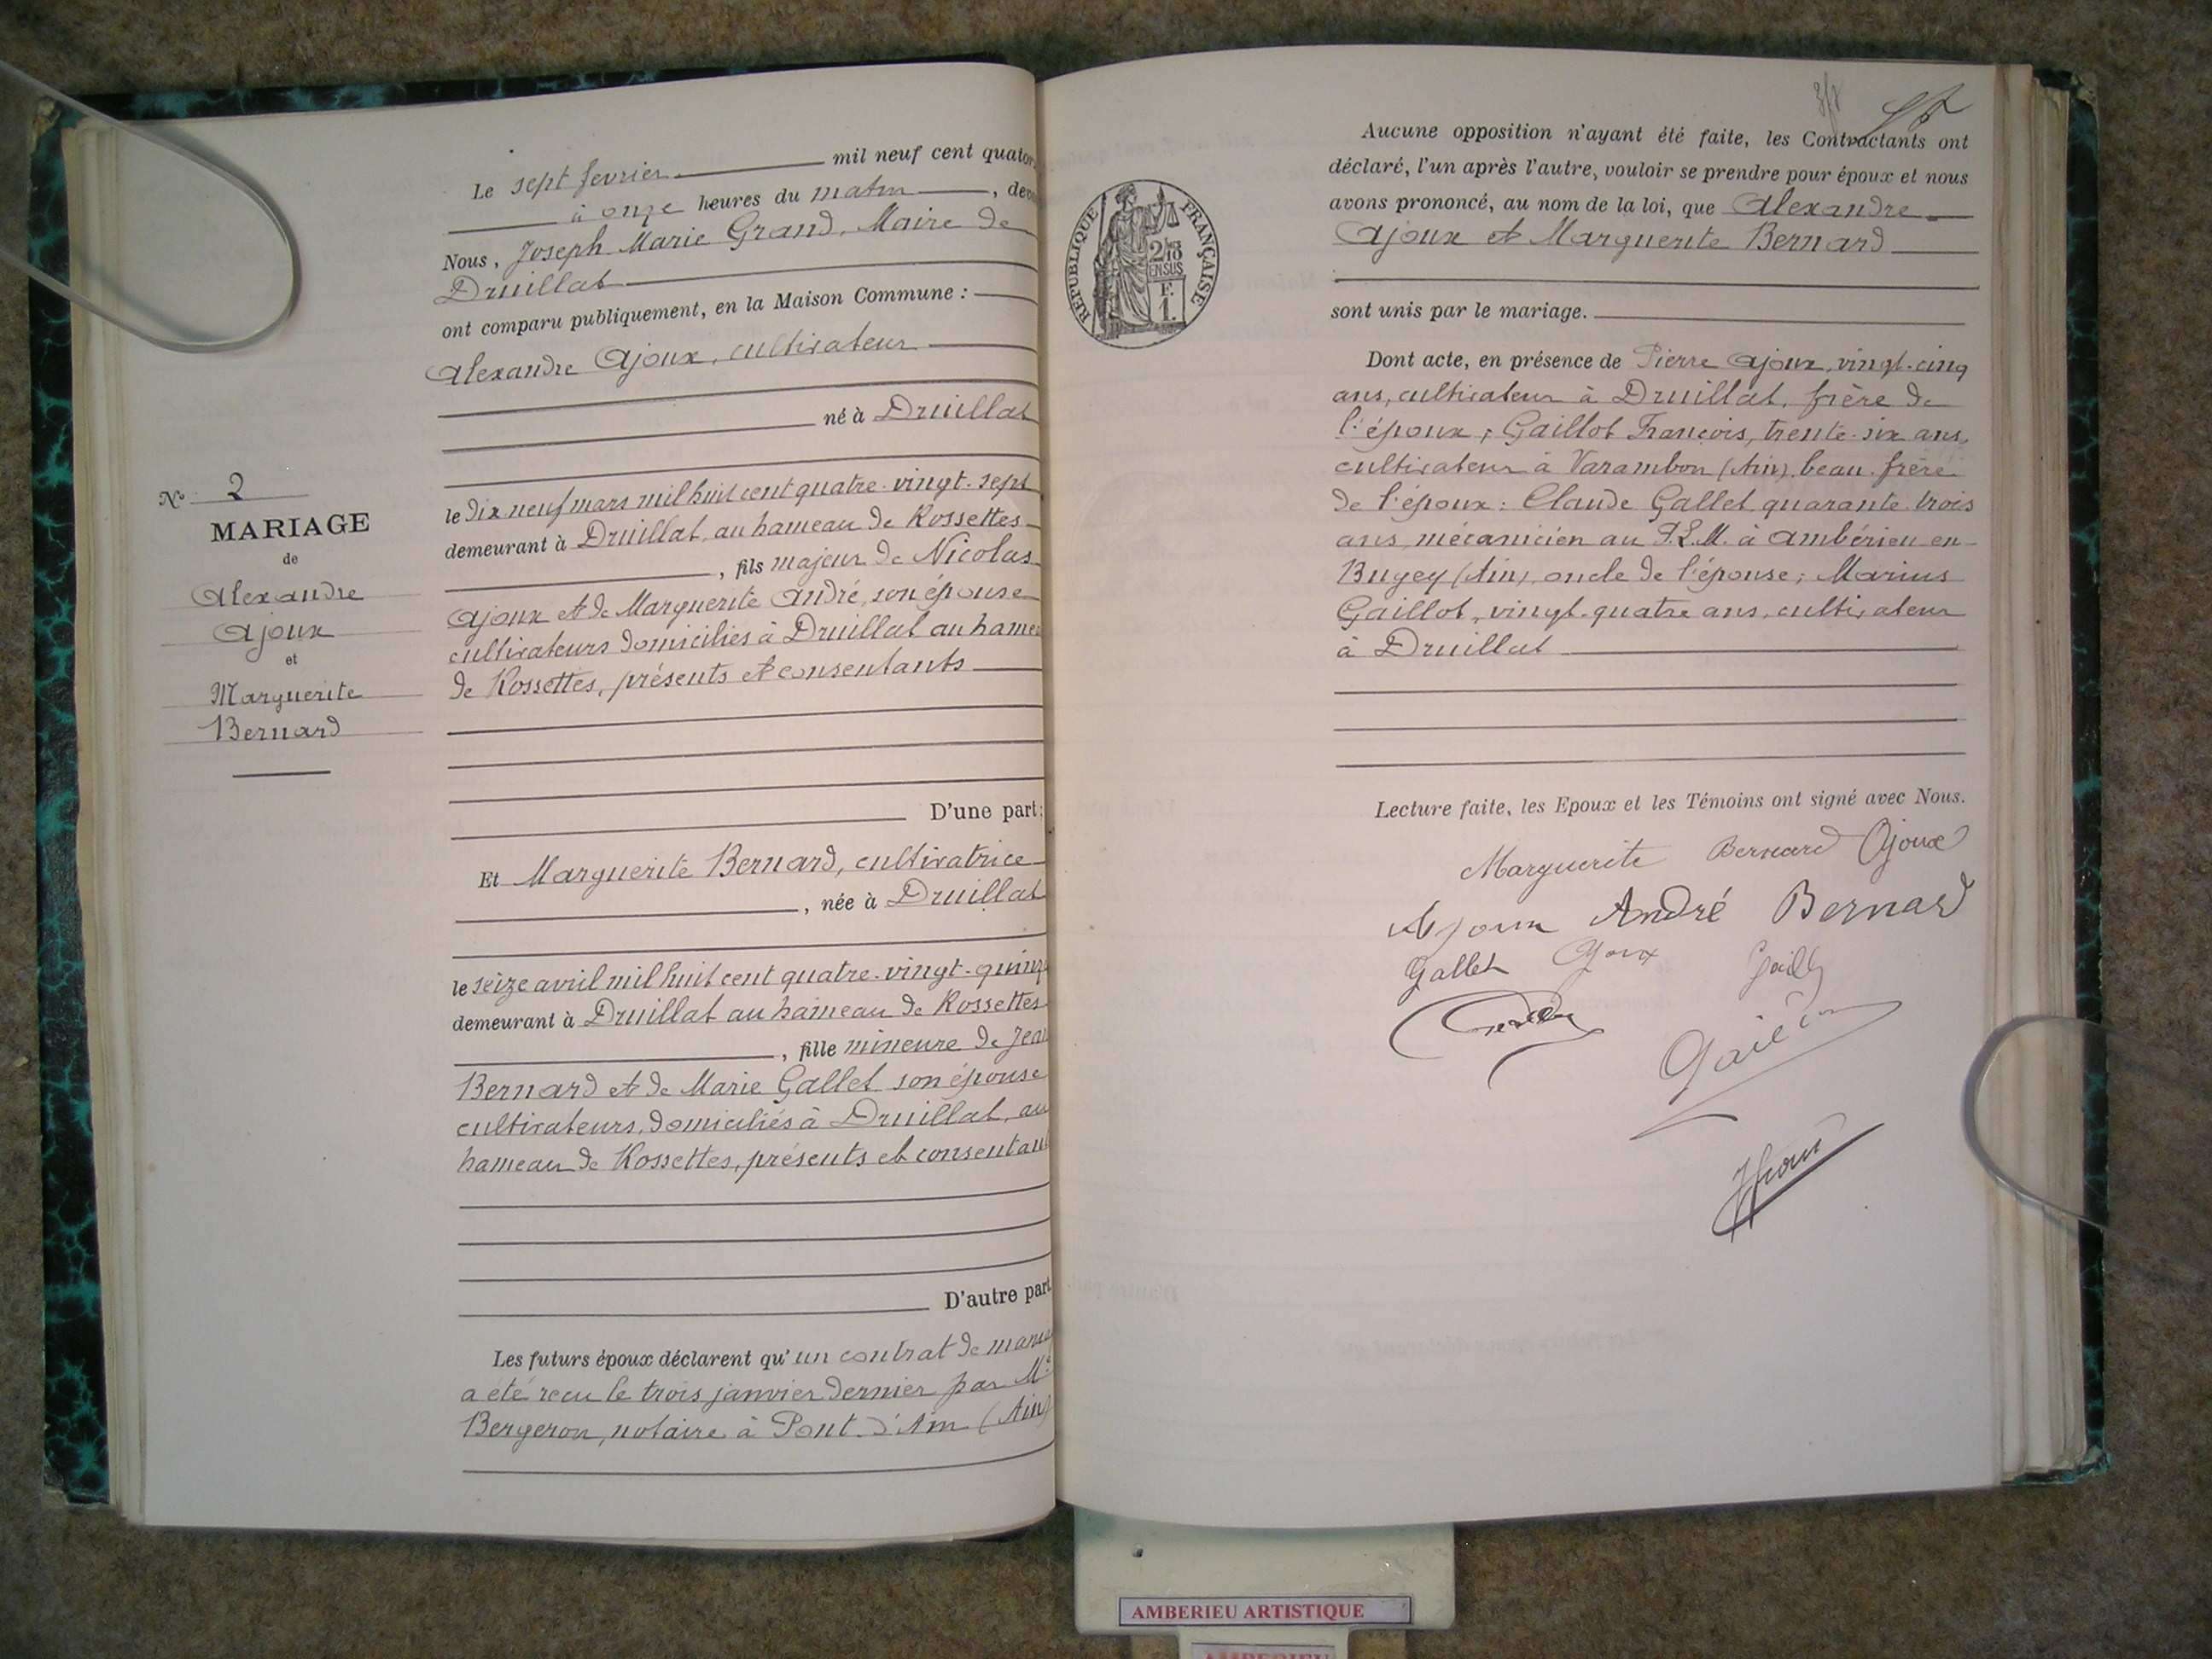 Le sept fevrier mil neuf cent quator
à onze heures du matin, deva
Nous, Joseph Marie Grand, Maire de
Druillat
ont comparu publiquement, en la Maison Commune :
Alexandre Ajoux, cultivateur
né à Druillat
le dix-neuf mars mil huit cent quatre-vingt-sept
demeurant à Druillat, au hameau de Rossettes
, fils majeur de Nicolas
Ajoux et de Marguerite André, son épouse
cultivateurs domiciliés à Druillat au hame
de Rossettes, présents et consentants
D'une part;
N° 2
MARIAGE
de
Alexandre
Ajoux
et
Marguerite
Bernard
Et Marguerite Bernard, cultivatrice
, née à Druillat
le seize avril mil huit cent quatre-vingt-quinz
demeurant à Druillat au hameau de Rossettes
, fille mineure de Jean
Bernard et de Marie Gallet son épouse
cultivateurs, domiciliés à Druillat, au
hameau de Rossettes, présents et consentant
D'autre part
Les futurs époux déclarent qu'un contrat de maria
a été reçu le trois janvier dernier par Me
Bergeron, notaire à Pont-d'Ain (Ain)
REPUBLIQUE FRANÇAISE
2/10
EN SUS
F.
1.
Aucune opposition n'ayant été faite, les Contractants ont
déclaré, l'un après l'autre, vouloir se prendre pour époux et nous
avons prononcé, au nom de la loi, que Alexandre
Ajoux et Marguerite Bernard
sont unis par le mariage.
Dont acte, en présence de Pierre Ajoux, vingt-cinq
ans, cultivateur à Druillat, frère de
l'époux; Gaillot François, trente-six ans,
cultivateur à Varambon (Ain), beau-frère
de l'époux: Claude Gallet quarante trois
ans, mécanicien au P.L.M. à Ambérieu en-
Bugey (Ain), oncle de l'épouse; Marius
Gaillot, vingt-quatre ans, cultivateur
à Druillat
Lecture faite, les Epoux et les Témoins ont signé avec Nous.
Marguerite Bernard Ajoux
Ajoux André Bernard
Gallet Ajoux
AMBERIEU ARTISTIQUE
AMBERIEU